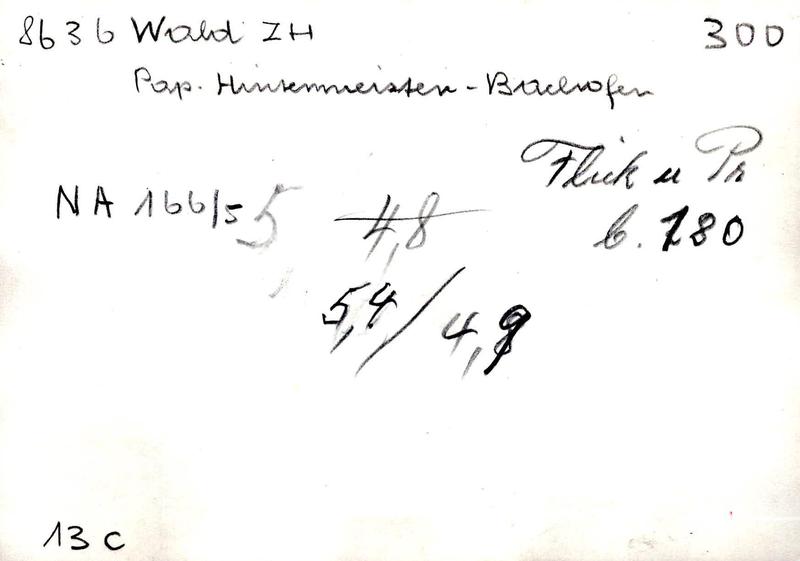 8636 Wald ZH 300
Pap. Hintermeister-Bachofen
Flick u Pr
NA 166/5 5 4,8 b. 180
5,4 / 4,9
13 c